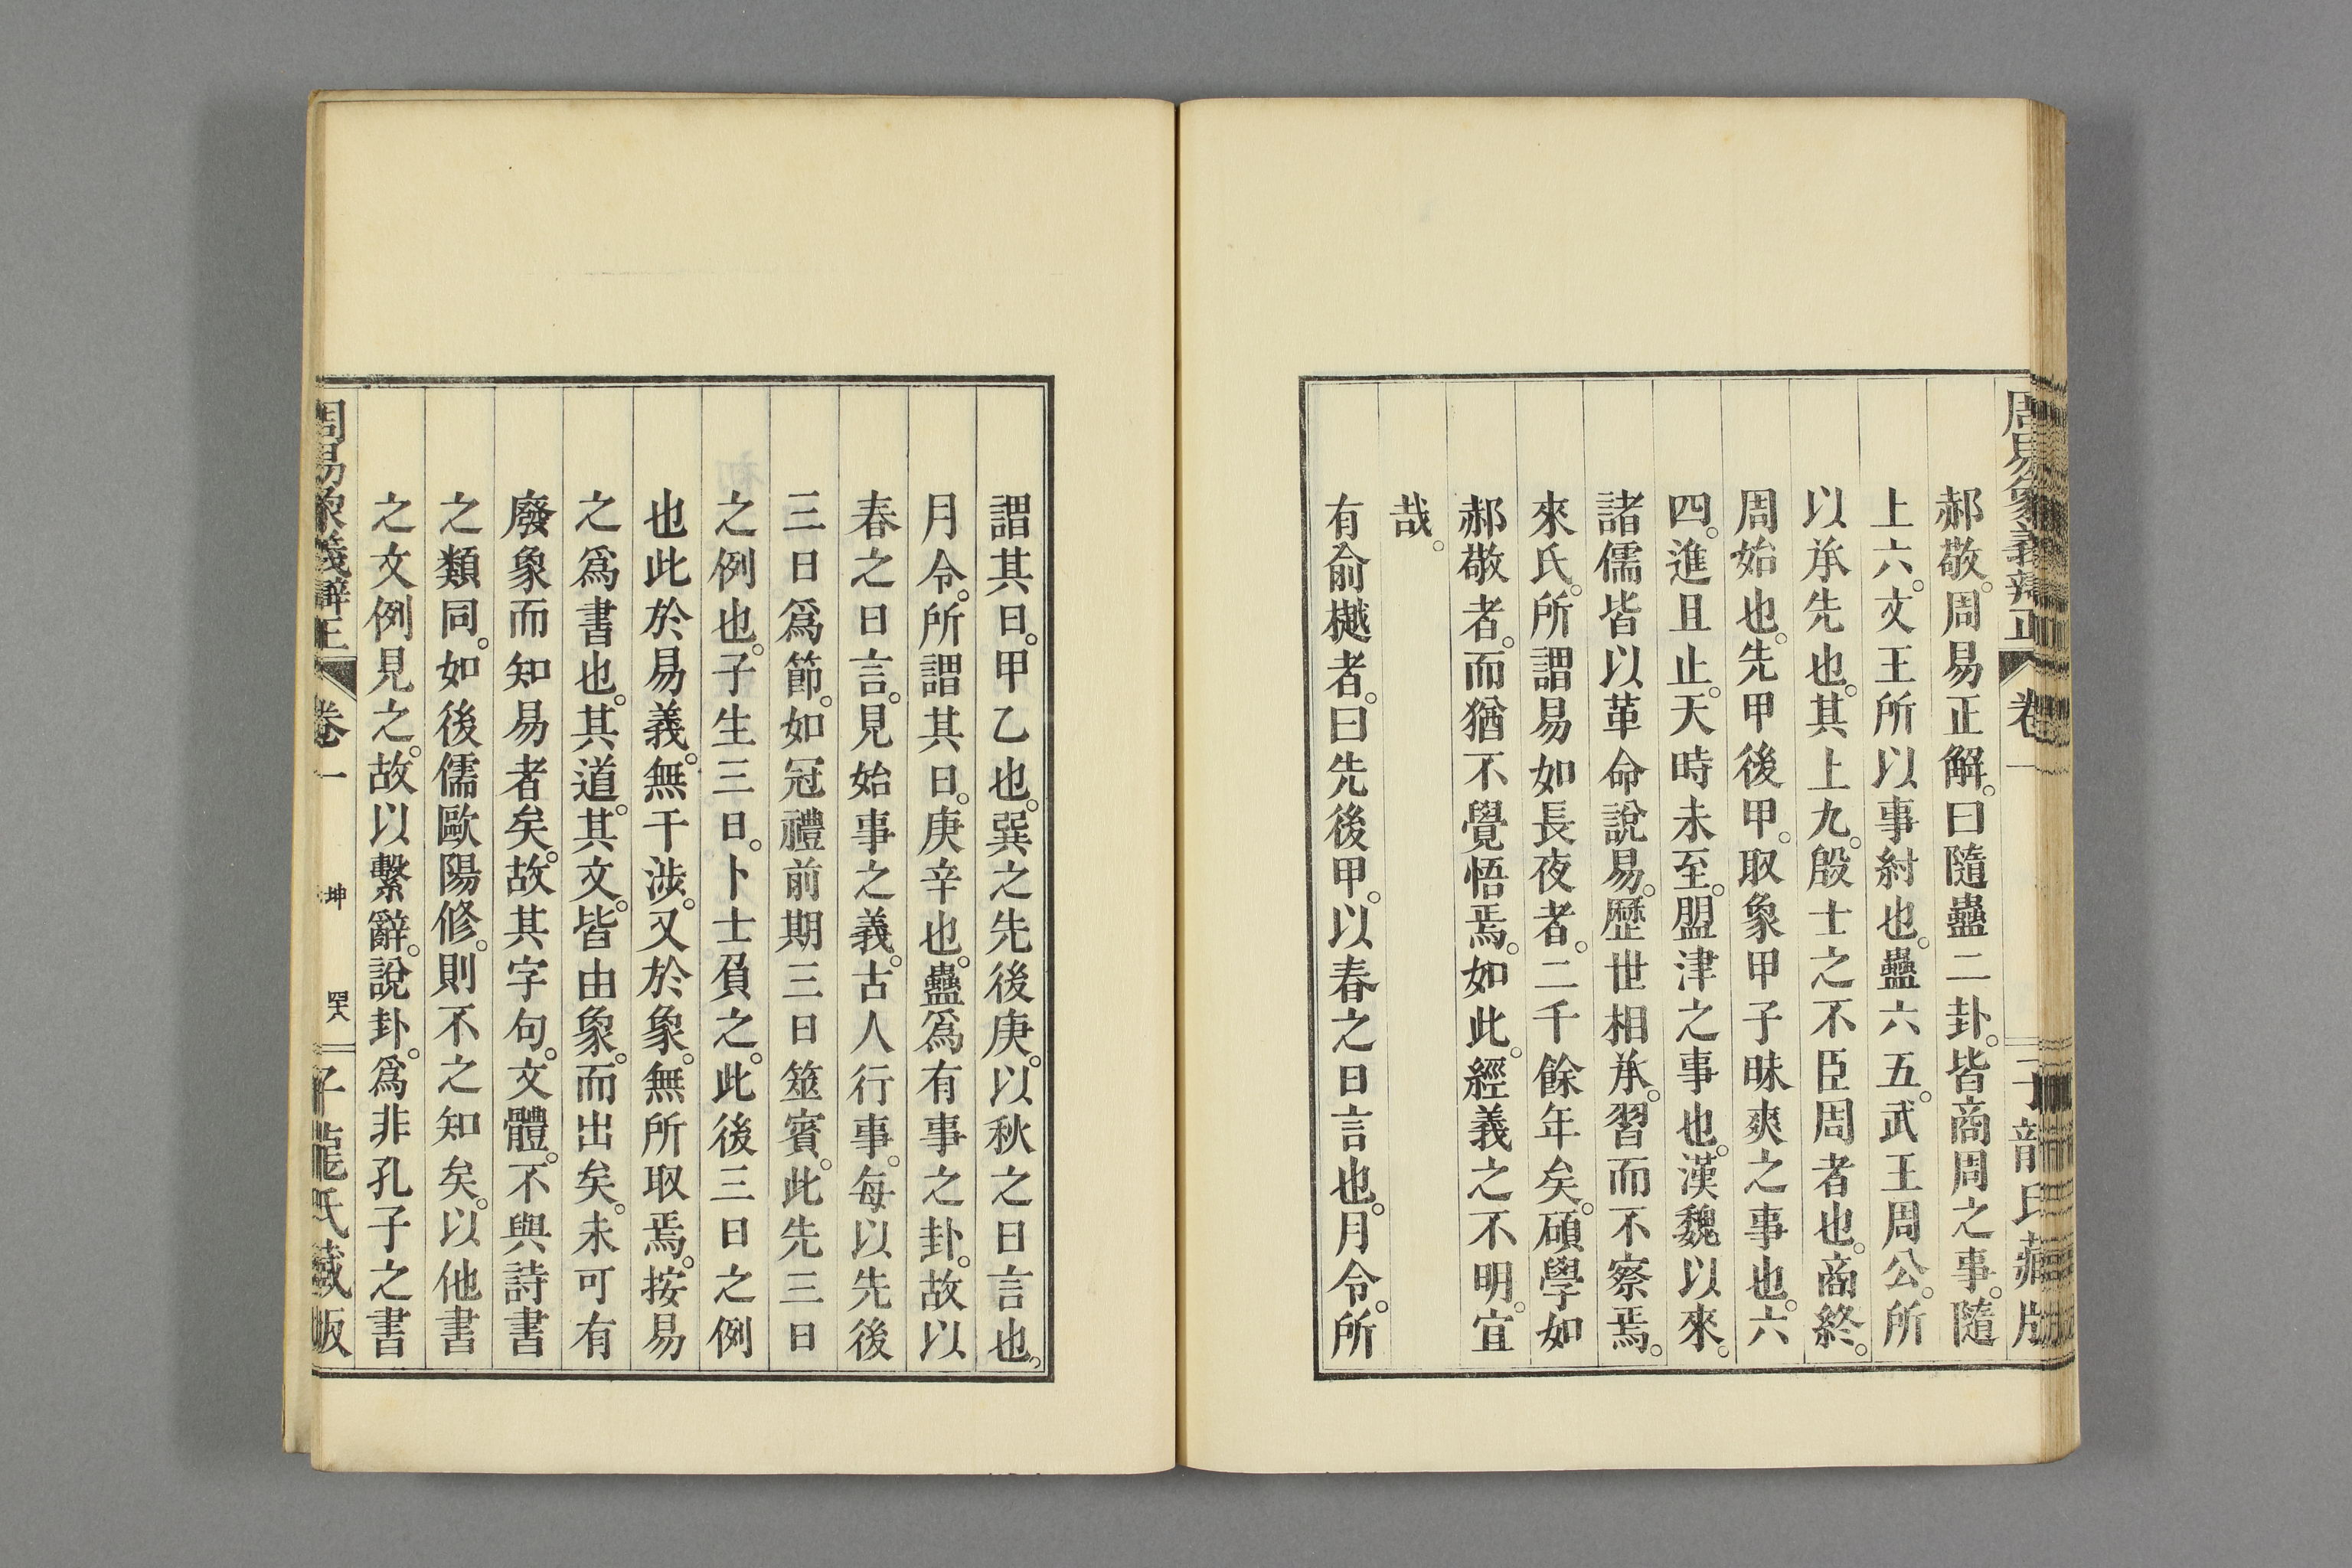 周易象義辯正 卷一 子龍氏藏版
郝敬。周易正解。曰隨蠱二卦。皆商周之事。隨
上六。文王所以事紂也。蠱六五。武王周公。所
以承先也。其上九。殷士之不臣周者也。商終。
周始也。先甲後甲。取象甲子昧爽之事也。六
四。進且止。天時未至。盟津之事也。漢魏以來。
諸儒皆以革命說易。歷世相承。習而不察焉。
來氏。所謂易如長夜者。二千餘年矣。碩學如
郝敬者。而猶不覺悟焉。如此。經義之不明。宜
哉。
有俞樾者。曰先後甲。以春之日言也。月令。所
謂其日。甲乙也。巽之先後庚。以秋之日言也。
月令。所謂其日。庚辛也。蠱爲有事之卦。故以
春之日言。見始事之義。古人行事。每以先後
三日爲節。如冠禮前期三日筮賓。此先三日
之例也。子生三日。卜士負之。此後三日之例
也此於易義。無干涉。又於象。無所取焉。按易
之爲書也。其道。其文。皆由象。而出矣。未可有
廢象而知易者矣。故其字句。文體。不與詩書
之類同。如後儒歐陽修。則不之知矣。以他書
之文例見之。故以繫辭。說卦。爲非孔子之書
周易象義辯正 卷一 坤 四十八 子龍氏藏版